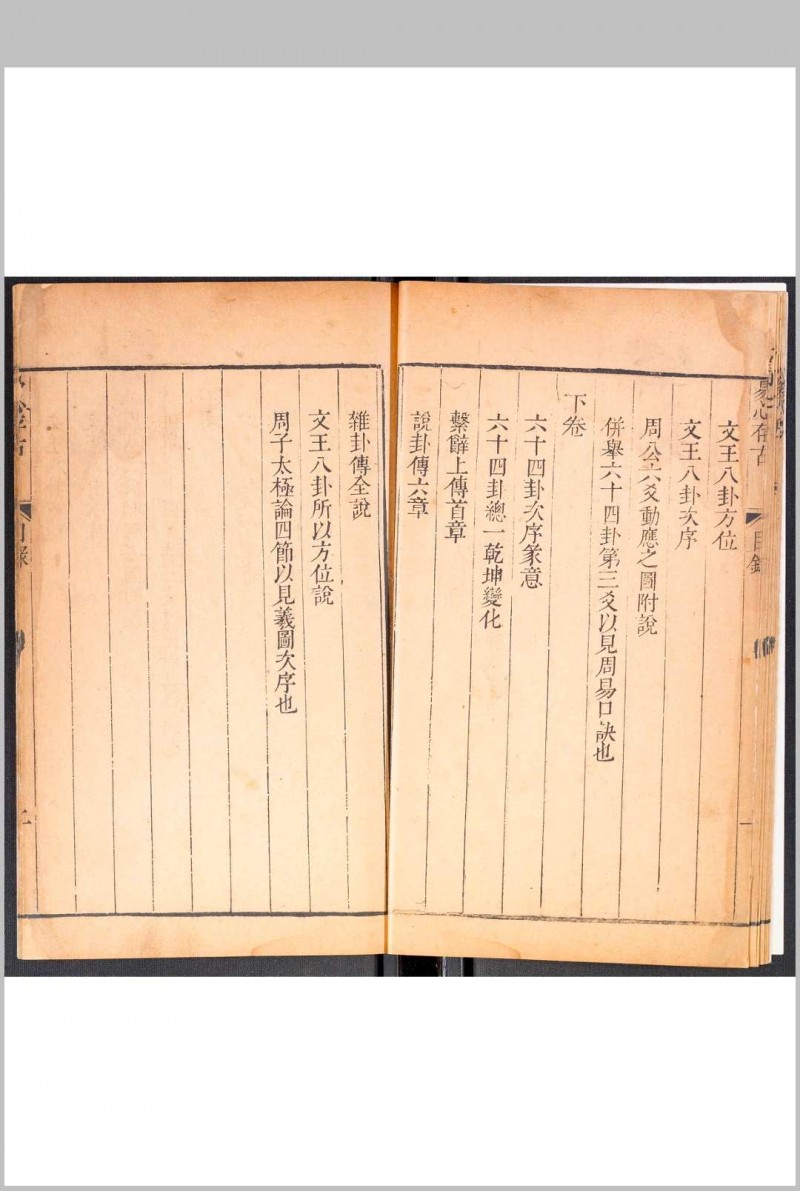 易心存古
目錄
一
文王八卦方位
文王八卦次序
周公六爻動應之圖附說
併舉六十四卦第三爻以見周易口訣也
下卷
六十四卦次序篆意
六十四卦總一乾坤變化
繫辭上傳首章
說卦傳六章
雜卦傳全說
文王八卦所以方位說
周子太極論四節以見羲圖次序也
目錄